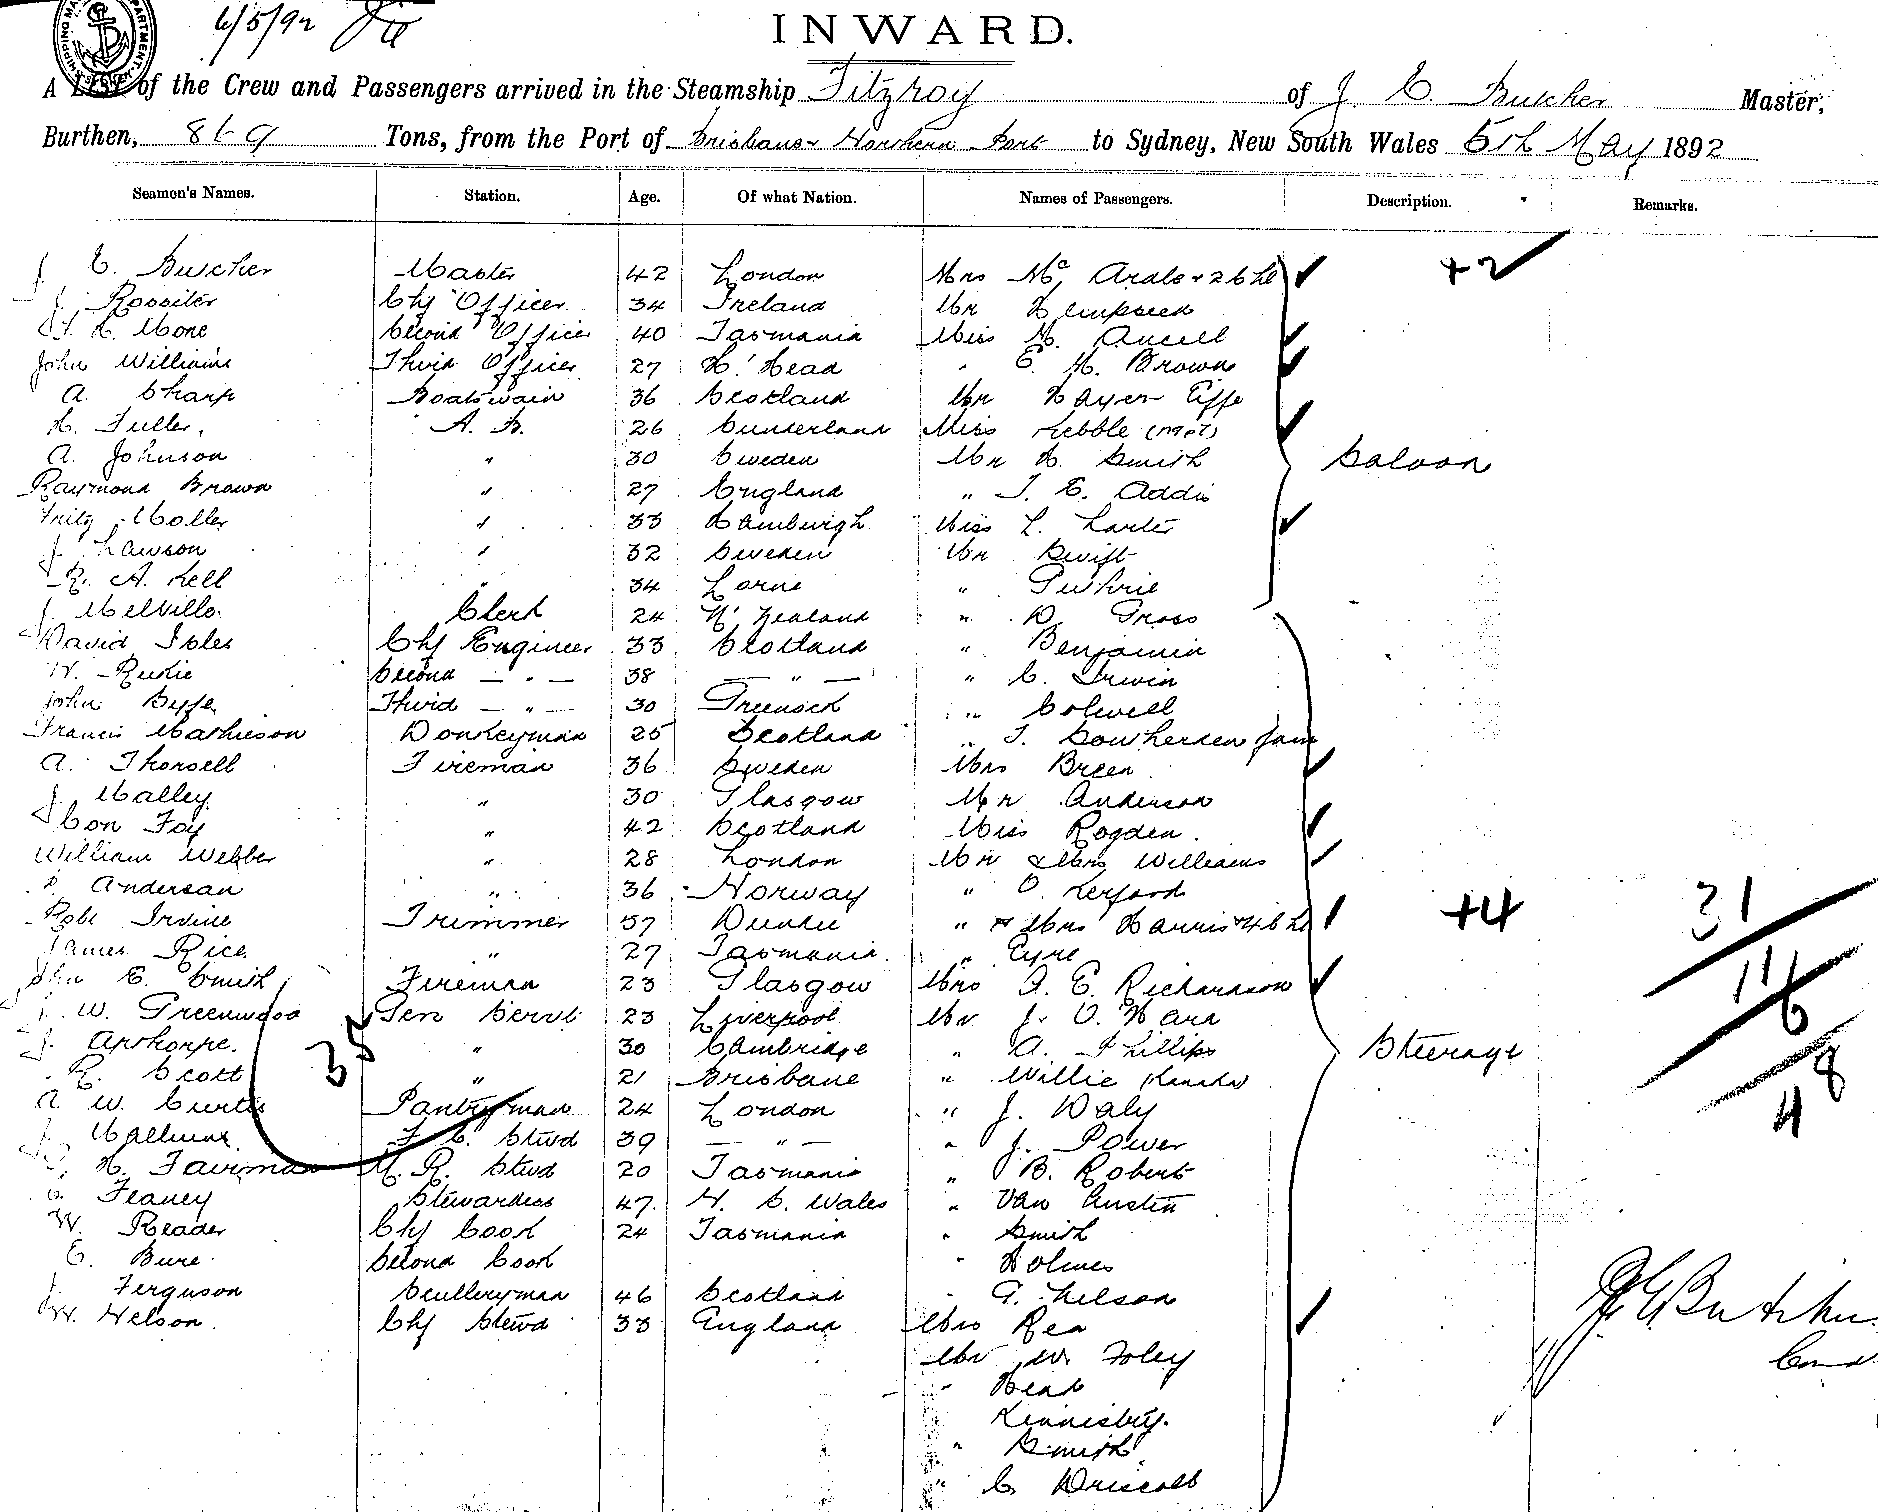 6/5/92
INWARD.
A List of the Crew and Passengers arrived in the Steamship Fitzroy of J. C. Butcher Master,
Burthen, 869 Tons, from the Port of Brisbane & Northern Port to Sydney, New South Wales 5th May 1892
Seamen's Names. Station. Age. Of what Nation. Names of Passengers. Description. Remarks.
J C. Butcher Master 42 London Mrs Mc Ardle & 2 Chl +2
J. Rossiter Chf Officer 34 Ireland Mr Dempseed
Second Officer 40 Tasmania Miss M. Ancell
John Williams Third Officer 27 H. Head " E. M. Brown
A. Sharp Boatswain 36 Scotland Mr Hayes
H. Fuller. A. B. 26 Sunderland Miss Kebble
A. Johnson " 30 Sweden Mr H. Smith Saloon
Raymond Brown " 27 England " T. E. Addis
Fritz Moller " 33 Hamburgh Miss L. Larter
J. Lawson " 32 Sweden Mr Swift
R. A. Kell " 34 Lorne " Guthrie
J. Melville Clerk 24 N' Zealand " D. Gross
David Isles Chf Engineer 33 Scotland " Benjamin
W. Reekie Second - " - 38 - " - " C. Irwin
John Third - " - 30 Greenock " Colwell
Francis Mathieson Donkeyman 25 Scotland " T.
A. Thorsell Fireman 36 Sweden Mrs Breen
J. Malley " 30 Glasgow Mr Anderson
Con Foy " 42 Scotland Miss Rogden
William Webber " 28 London Mr & Mrs Williams
Anderson " 36 Norway " O. Kerford
Robt Irvine Trimmer 57 Dundee " & Mrs Harris & 4 Chl +4 31
James Rice " 27 Tasmania " Eyre
John E. Smith Fireman 23 Glasgow Mrs A. E. Richardson 11
J. W. Greenwood Gen Servt 23 Liverpool Mr J. O'Hara 6
J. Apthorpe. 35 " 30 Cambridge " A. Phillips Steerage
R. Scott " 21 Brisbane " Willie (Kanaka) 8
A. W. Curtis Pantryman 24 London " J. Daly 4
J. F. C. Stewd 39 - " - " J. Power
H. Fairman M. R. Stewd 20 Tasmania " B. Robert
Feaney Stewardess 47 N. S. Wales " Van Austin
W. Reader Chf Cook 24 Tasmania " Smith
E. Bure Second Cook " Holmes
J. Ferguson Sculleryman 46 Scotland " G. Nelson
W. Nelson Chf Stewd 33 England Mrs Rea
Mr W. Foley
" Head
Kennisbry.
" Smith
" C. Driscoll
J C Butcher